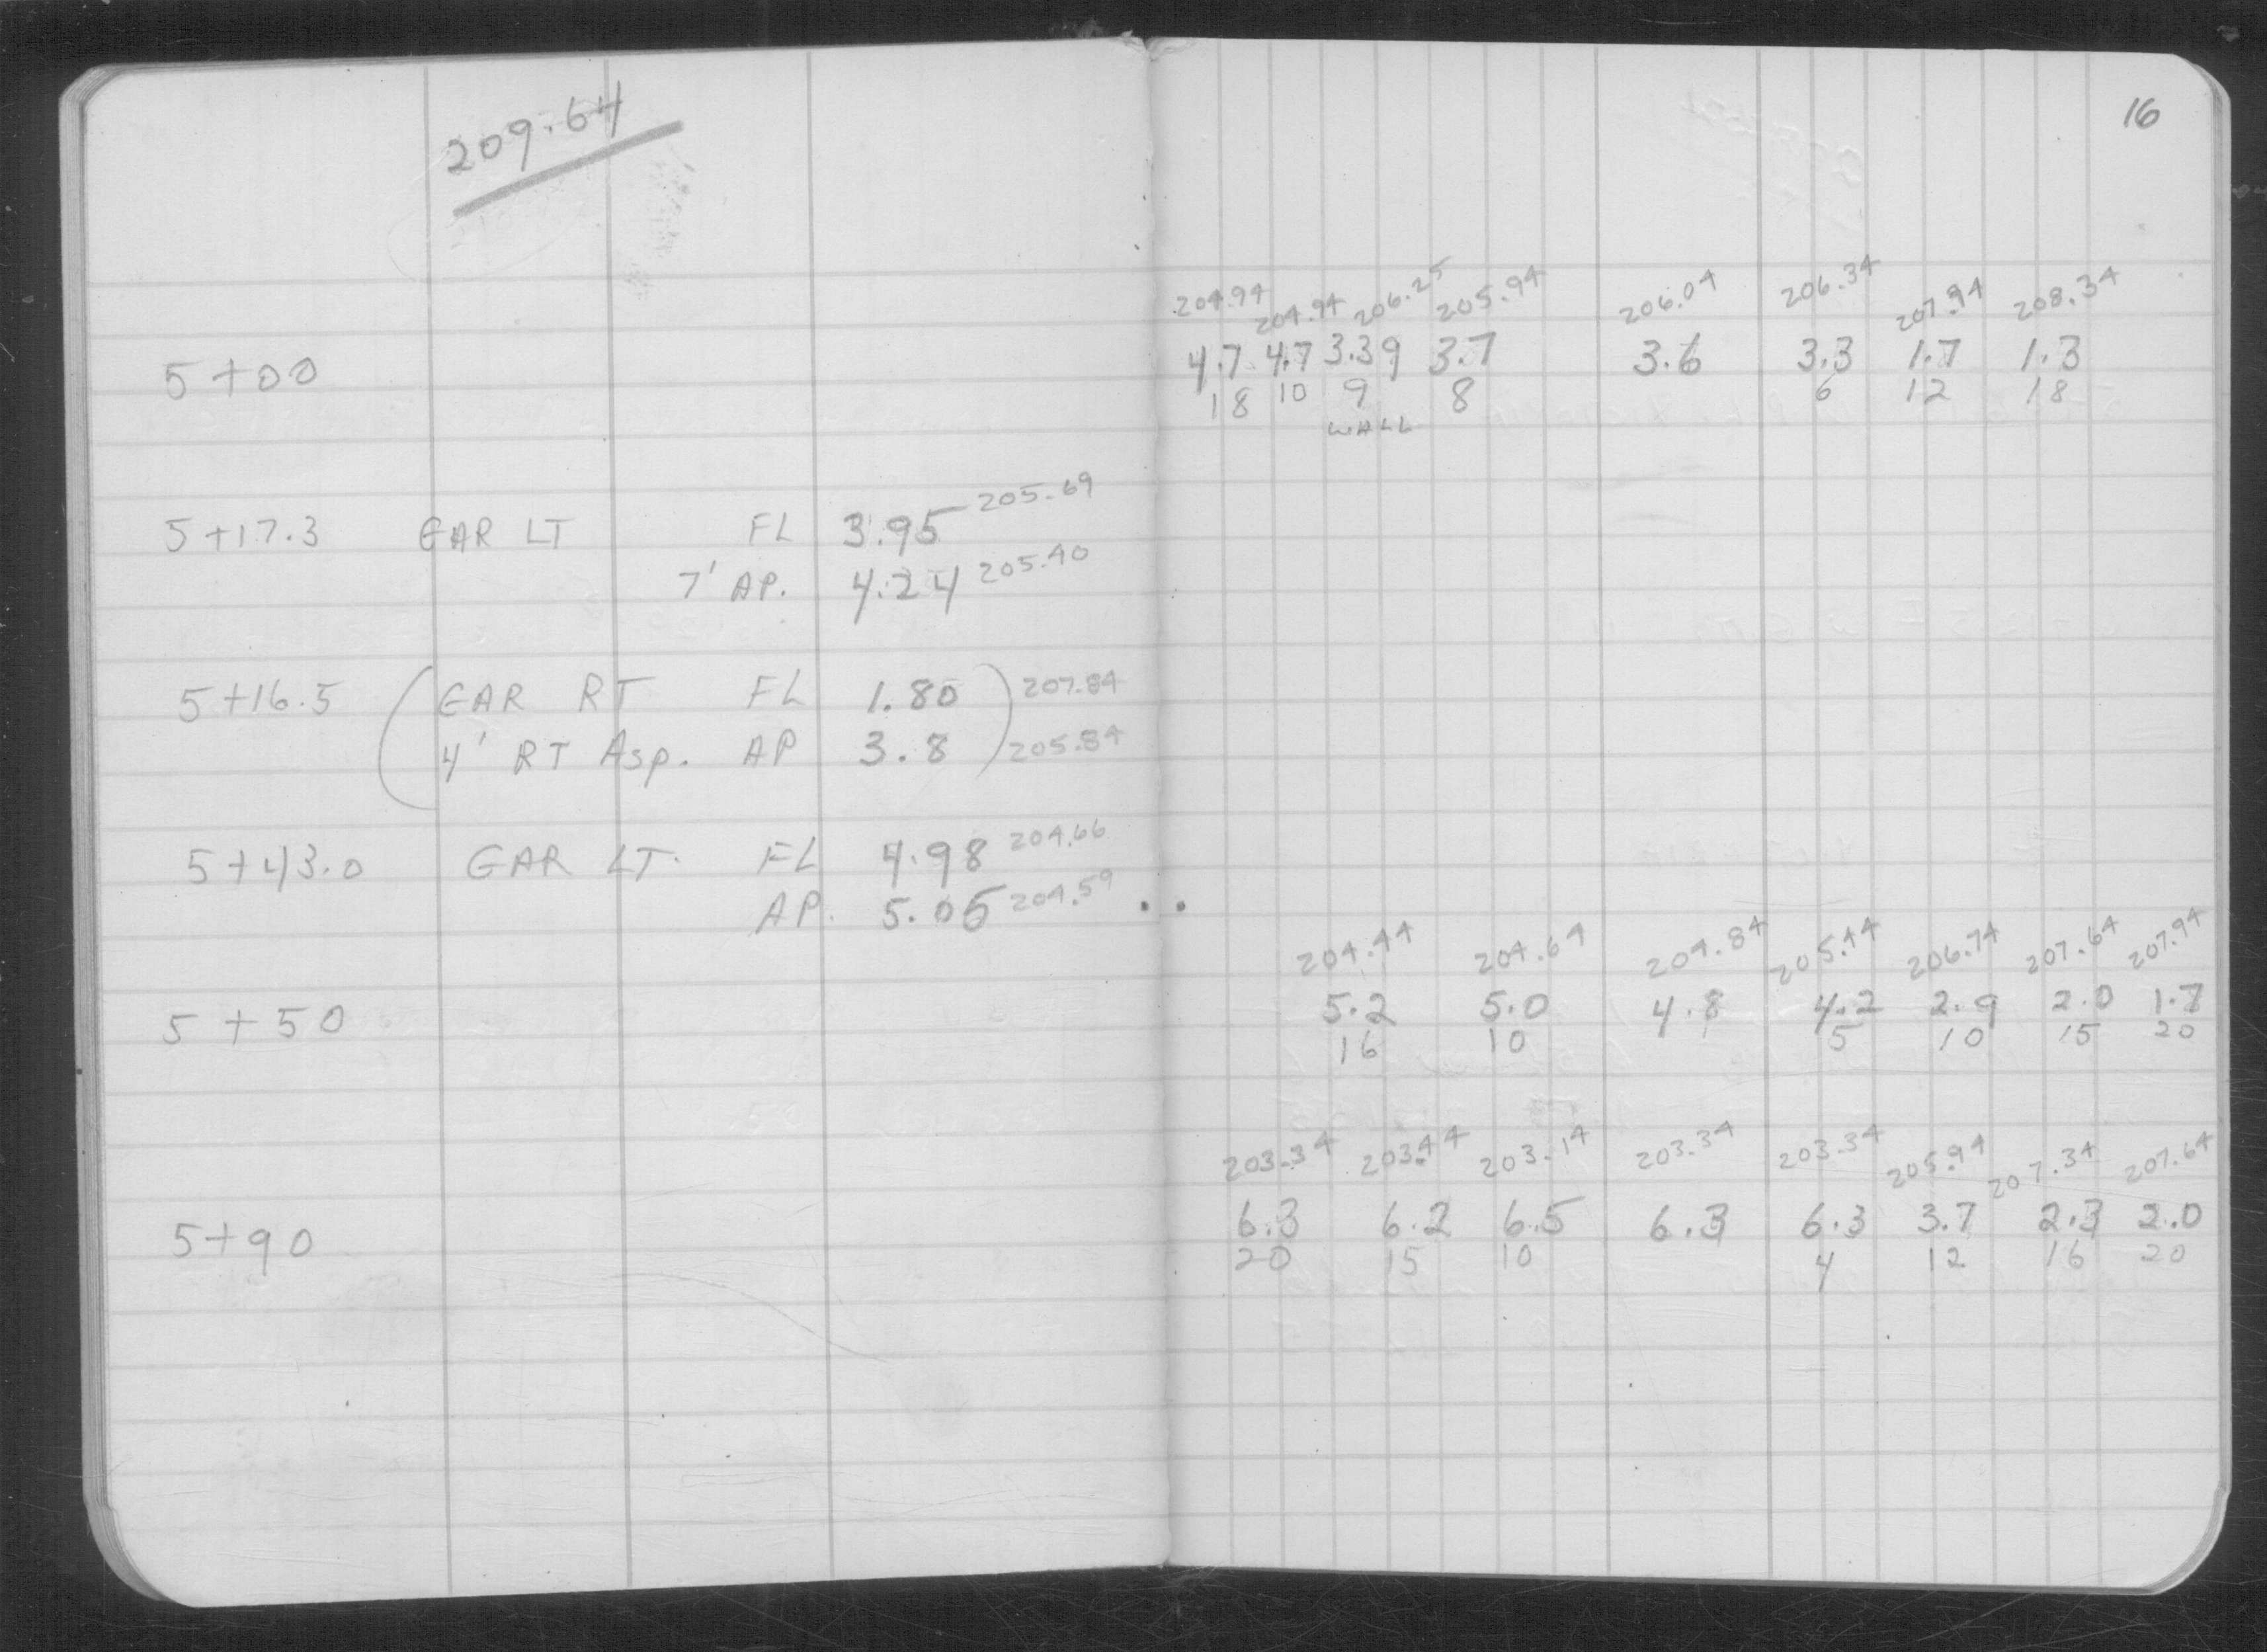 209.64
16
204.94 204.94 206.25 205.94 206.04 206.34 207.94 208.34
5+00 4.7 4.7 3.39 3.7 3.6 3.3 1.7 1.3
18 10 9 8 6 12 18
WALL
5+17.3 GAR LT FL 3.95 205.69
7' AP. 4.24 205.40
5+16.5 (GAR RT FL 1.80) 207.84
4' RT Asp. AP 3.8 205.84
5+43.0 GAR LT. FL 4.98 204.66
AP. 5.05 204.59
204.44 204.64 204.84 205.44 206.74 207.64 207.94
5+50 5.2 5.0 4.8 4.2 2.9 2.0 1.7
16 10 5 10 15 20
203.34 203.44 203.14 203.34 203.34 205.94 207.34 207.64
5+90 6.3 6.2 6.5 6.3 6.3 3.7 2.3 2.0
20 15 10 4 12 16 20